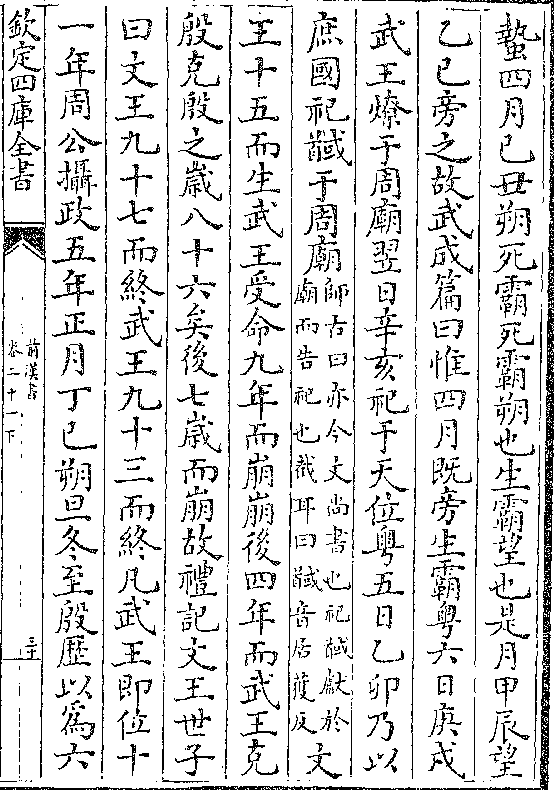 蟄四月己丑朔死霸死霸朔也生霸望也是月甲辰望
乙巳旁之故武成篇曰惟四月既旁生霸粤六日庚戌
武王燎于周廟翌日辛亥祀于天位粤五日乙卯乃以
庶國祀馘于周廟師古曰亦今文尚書也祀馘獻於廟而告祀也截耳曰馘音居獲反文
王十五而生武王受命九年而崩崩後四年而武王克
殷克殷之歲八十六矣後七歲而崩故禮記文王世子
曰文王九十七而終武王九十三而終凡武王即位十
一年周公攝政五年正月丁巳朔旦冬至殷歴以為六
欽定四庫全書
前漢書
卷二十一下
三十